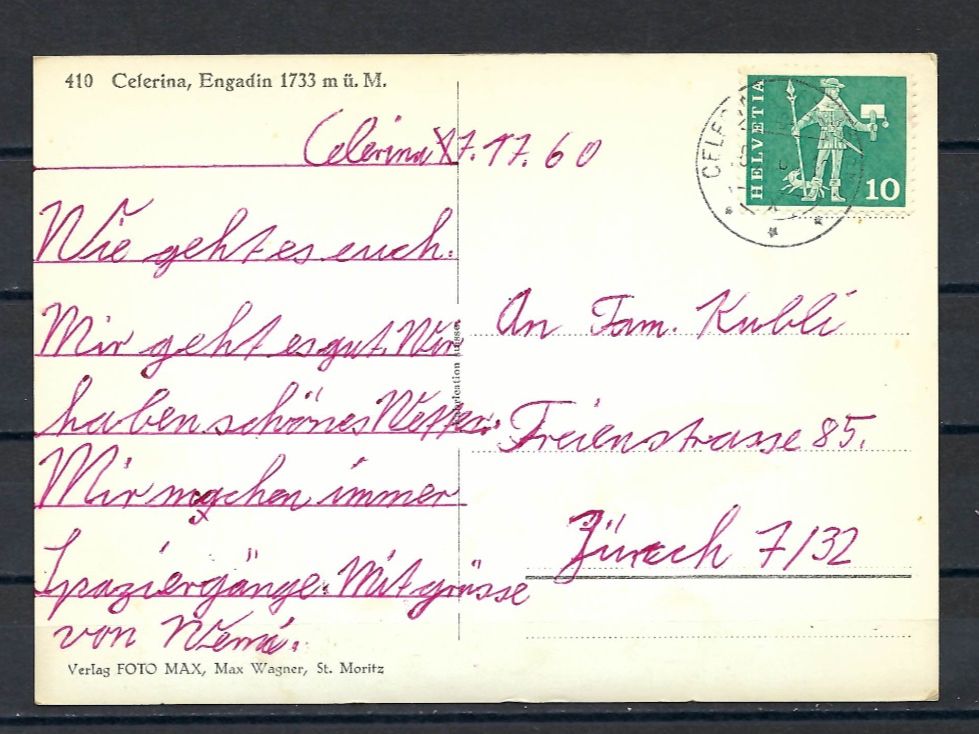 410 Celerina, Engadin 1733 m ü. M.
Celerina 17.17.60
Wie geht es euch.
Mir geht es gut. Wir
haben schönes Wetter.
Mir machen immer
Spaziergänge. Mit grüsse
von
Verlag FOTO MAX, Max Wagner, St. Moritz
HELVETIA
10
An Fam. Kubli
Freienstrasse 85.
Zürech 7/32